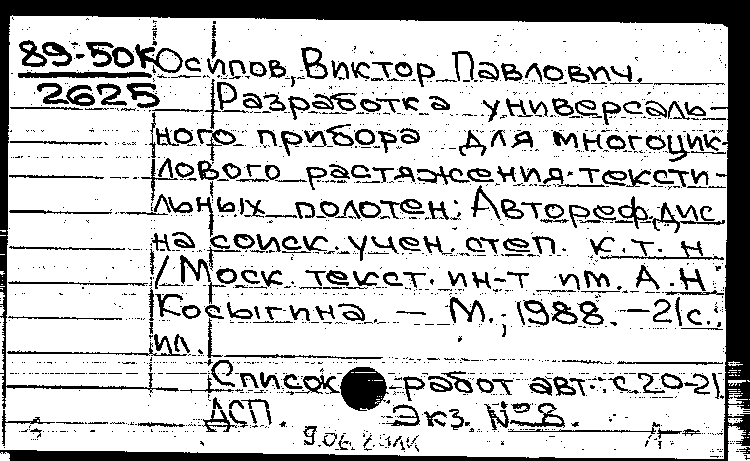 89-50К Осипов, Виктор Павлович.
2625 Разработка универсаль-
ного прибора для многоцик-
лового растяжения тексти-
льных полотен: Автореф. дис.
на соиск. учен. степ. к.т.н
/Моск. текст. ин-т им. А.Н.
Косыгина. — М., 1988. — 21с.:
ил.
Список работ авт.: с 20-21
ДСП. Экз. № 8.
9.06.89